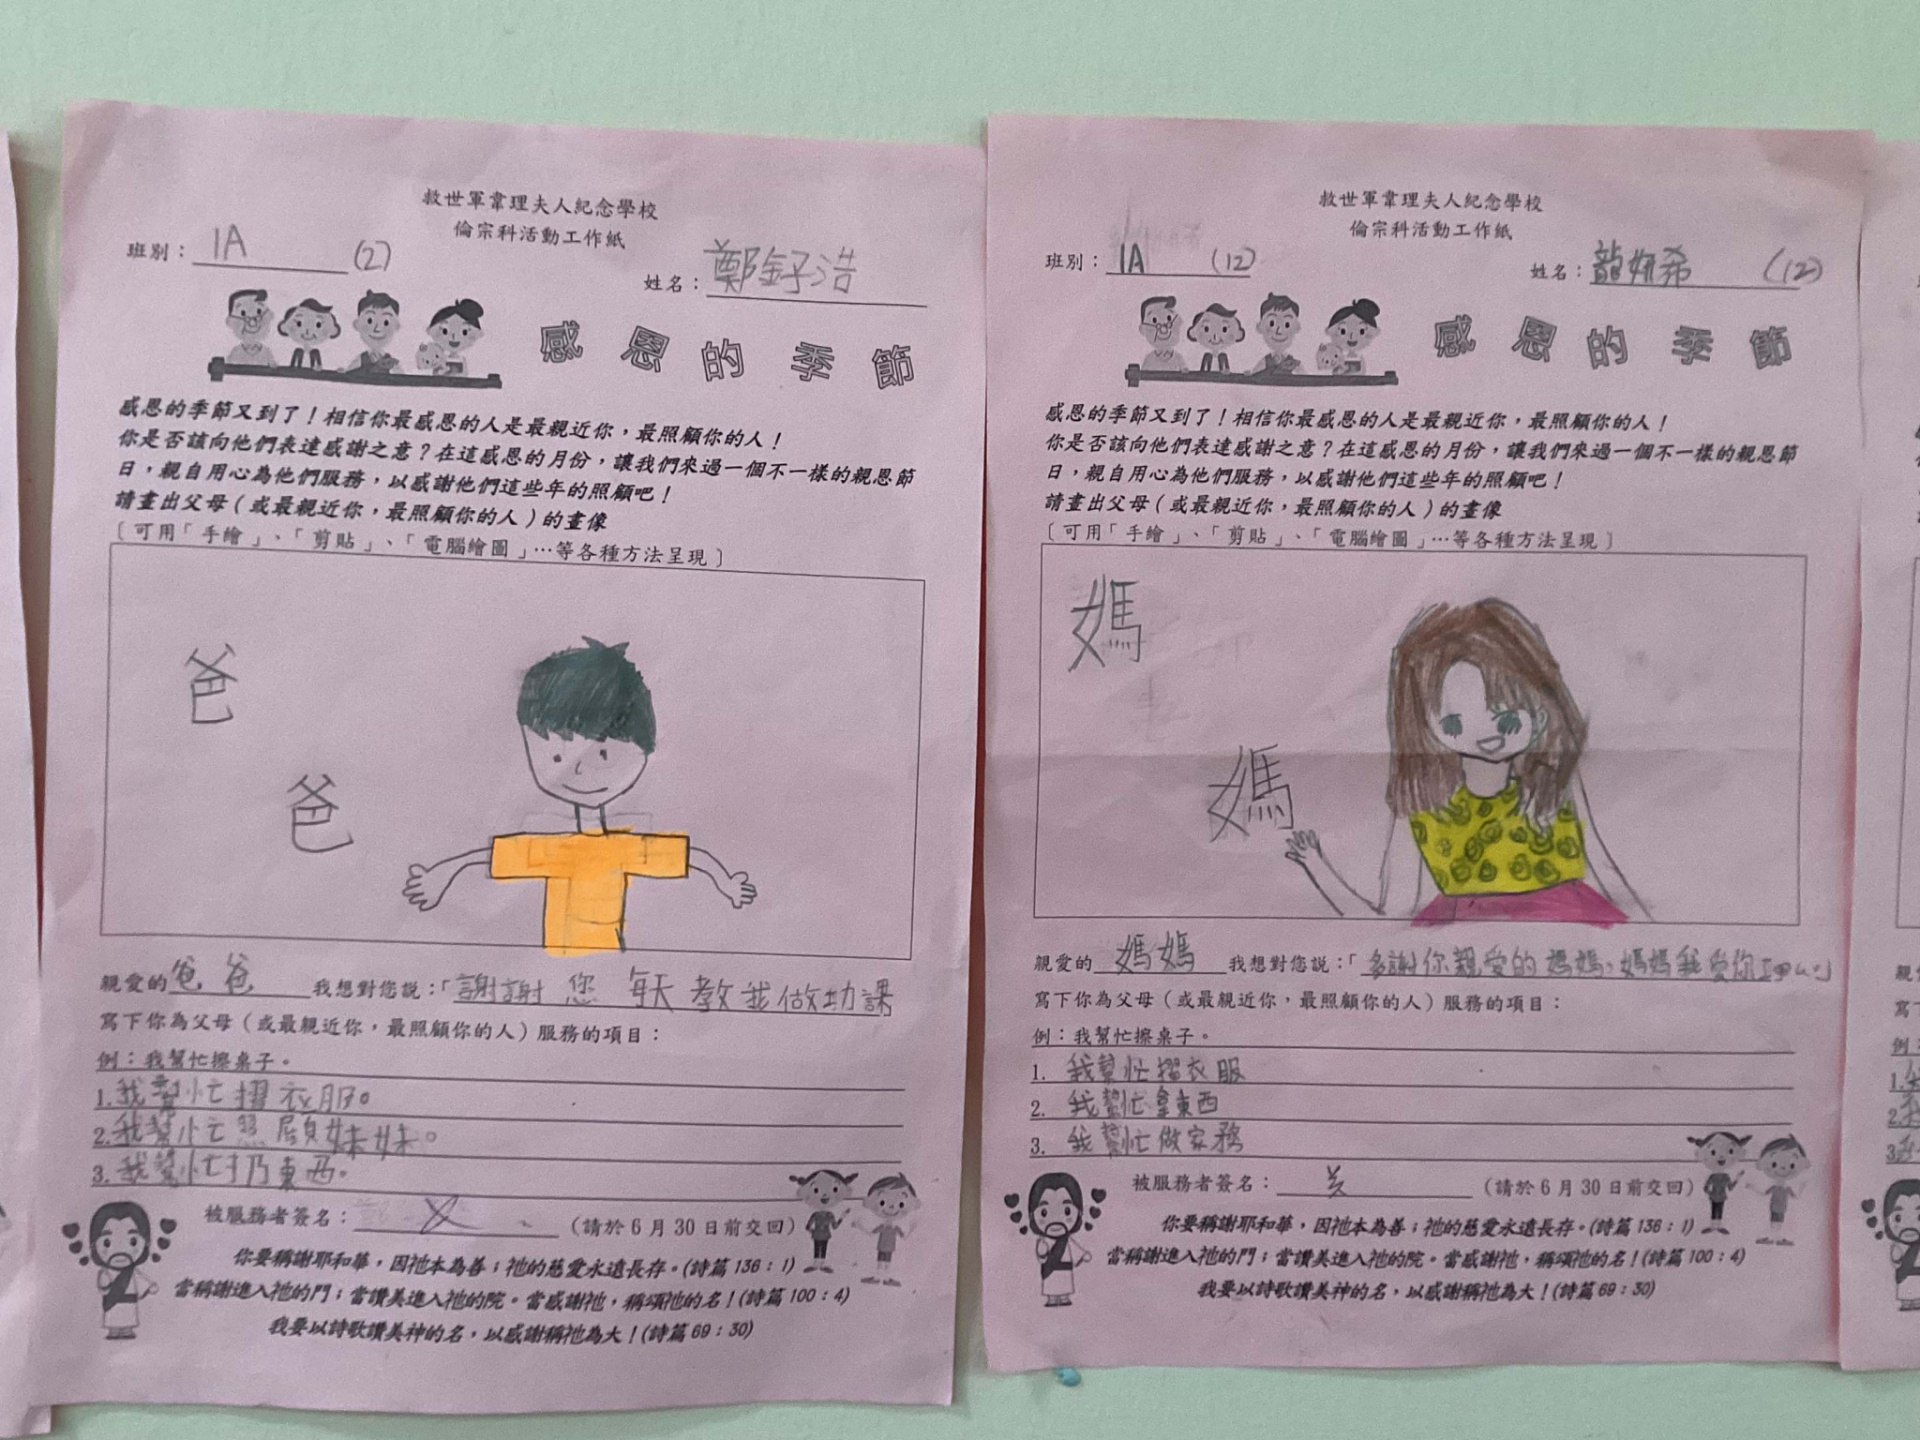 救世軍韋理夫人紀念學校
倫宗科活動工作紙
班別：1A (2)
姓名：鄭釨浩
感恩的季節
感恩的季節又到了！相信你最感恩的人是最親近你，最照顧你的人！
你是否該向他們表達感謝之意？在這感恩的月份，讓我們來過一個不一樣的親恩節
日，親自用心為他們服務，以感謝他們這些年的照顧吧！
請畫出父母（或最親近你，最照顧你的人）的畫像
〔可用「手繪」、「剪貼」、「電腦繪圖」…等各種方法呈現〕
爸
爸
親愛的爸爸 我想對您說：「謝謝您 每天教我做功課
寫下你為父母（或最親近你，最照顧你的人）服務的項目：
例：我幫忙擦桌子。
1.我幫忙摺衣服。
2.我幫忙照顧妹妹。
3.我幫忙扔東西。
被服務者簽名： （請於6月30日前交回）
你要稱謝耶和華，因祂本為善；祂的慈愛永遠長存。(詩篇136：1)
當稱謝進入祂的門；當讚美進入祂的院。當感謝祂，稱頌祂的名！(詩篇100：4)
我要以詩歌讚美神的名，以感謝稱祂為大！(詩篇69：30)
救世軍韋理夫人紀念學校
倫宗科活動工作紙
班別：1A (12)
姓名：龍妍希 (12)
感恩的季節
感恩的季節又到了！相信你最感恩的人是最親近你，最照顧你的人！
你是否該向他們表達感謝之意？在這感恩的月份，讓我們來過一個不一樣的親恩節
日，親自用心為他們服務，以感謝他們這些年的照顧吧！
請畫出父母（或最親近你，最照顧你的人）的畫像
〔可用「手繪」、「剪貼」、「電腦繪圖」…等各種方法呈現〕
媽
媽
親愛的媽媽 我想對您說：「多謝你親愛的媽媽，媽媽我愛你
寫下你為父母（或最親近你，最照顧你的人）服務的項目：
例：我幫忙擦桌子。
1. 我幫忙摺衣服
2. 我幫忙拿東西
3. 我幫忙做家務
被服務者簽名： （請於6月30日前交回）
你要稱謝耶和華，因祂本為善；祂的慈愛永遠長存。(詩篇136：1)
當稱謝進入祂的門；當讚美進入祂的院。當感謝祂，稱頌祂的名！(詩篇100：4)
我要以詩歌讚美神的名，以感謝稱祂為大！(詩篇69：30)